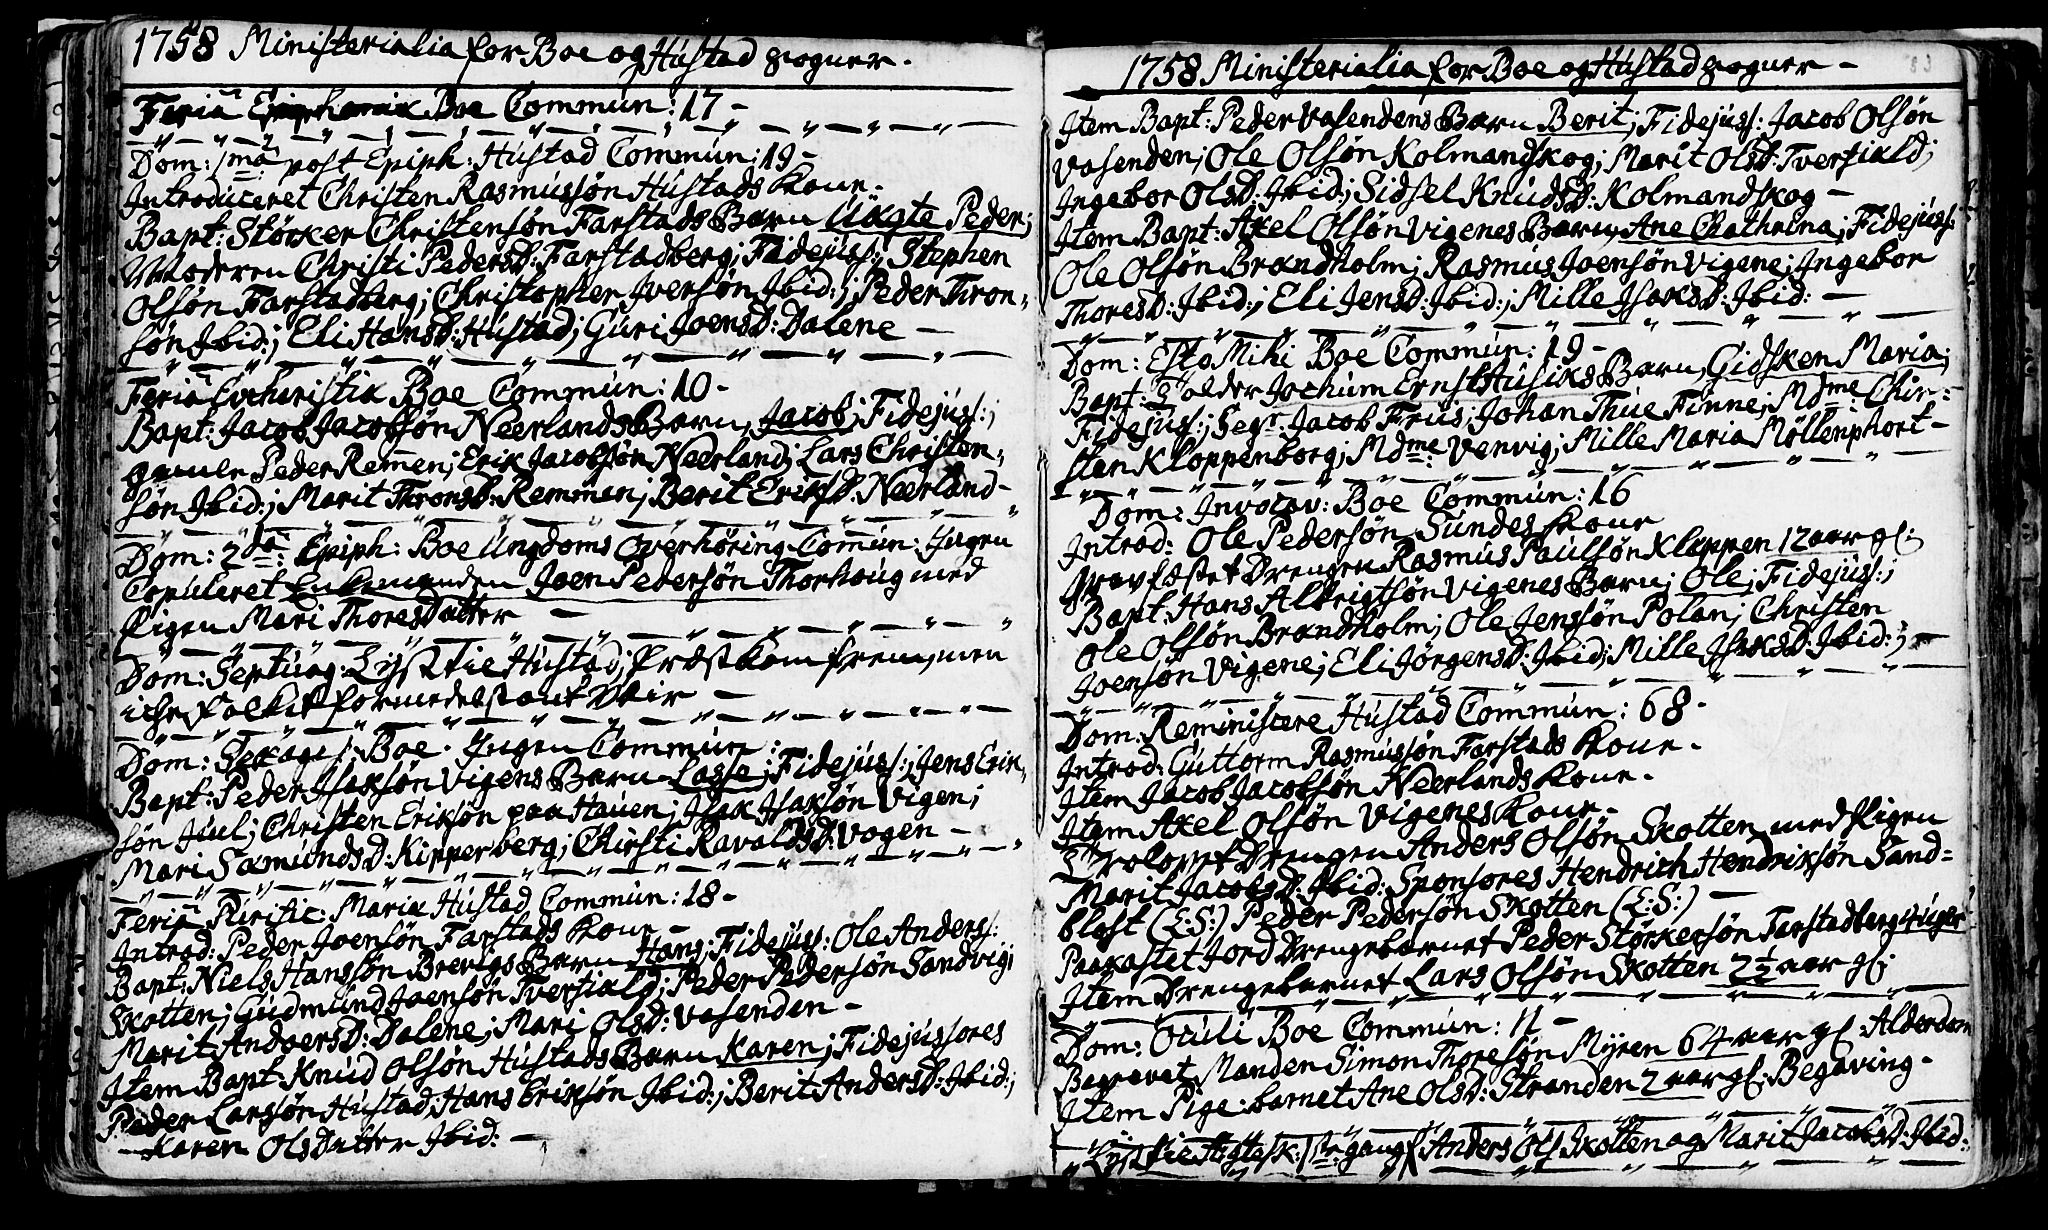 1758 Ministerialia for Boe og Hustad Sogner.
Feria Epiphaniæ Boe Commun: 17 -
Dom: 1ma post Epiph: Hustad Commun: 19 -
Introduceret Christen Rasmussøn Hustads Kone.
Bapt: Størker Christensøn Farstads Barn Uægte Peder;
Moderen Christi Pedersd: Farstadberg; Fidejuss:; Stephen
Olsøn Farstadberg; Christopher Iversøn Ibid:; Peder Thron-
søn Ibid:; Eli Hansd: Hustad; Guri Joensd: Dalene -
Feria Eucharistiæ Boe Commun: 10 -
Bapt: Jacob Jacobsøn Neerlands Barn, Jacob; Fidejuss:;
Peder Remmen; Erik Jacobsøn Neerland; Lars Christen-
søn Ibid:; Marit Thronsd: Remmen; Berit Eriksd: Neerland -
Dom: 2da: Epiph: Boe Ungdoms Overhøring Commun: Ingen
Copuleret Enkemanden Joen Pedersøn Thorhoug med
Pigen Mari Thoresdatter -
Dom: Septuag: Lyst tie Hustad; Præst kom frem, men
iche folket formedelst ont Veir -
Dom: Sexages: Boe. Ingen Commun:
Bapt: Peder Isaksøn Vigens Barn Lasse; Fidejuss:; Jens Erik-
søn Juul; Christen Eriksøn paa Hauen; Isak Isaksøn Vigen;
Mari Sæmundsd: Kipperberg; Christi Ravaldsd: Vogen -
Feria Purific: Mariæ Hustad Commun: 18 -
Introd: Peder Joensøn Farstads Kone -
Bapt: Niels Hanssøn Brevigs Barn Hans; Fidejuss: Ole Anders:
Skotten; Gudmund Joensøn Tverfiald; Peder Pedersøn Sandvig;
Marit Andersd: Dalene; Mari Olsd: Vasenden -
Item Bapt: Knud Olsøn Hustads Barn Karen; Fidejussores
Peder Larssøn Hustad; Hans Eriksøn Ibid:; Berit Andersd: Ibid:;
Karen Olsdatter Ibid: -
1758 Ministerialia for Boe og Hustad Sogner -
Item Bapt: Peder Vasendens Barn Berit; Fidejuss: Jacob Olsøn
Vasenden; Ole Olsøn Kolmandskog; Marit Olsd: Tverfiald;
Ingebor Olsd: Ibid:; Sidsel Knudsd: Kolmandskog -
Item Bapt: Axel Olsøn Vigenes Barn, Ane Chathrina; Fidejuss:
Ole Olsøn Brandholm; Rasmus Joensøn Vigene; Ingebor
Thoresd: Ibid:; Eli Jensd: Ibid:; Mille Isaksd: Ibid: -
Dom: Esto Mihi Boe Commun: 19 -
Bapt: Jochum Ernst Husiks Barn, Gidsken Maria;
Fidejuss:; Segr. Jacob Friis; Johan Thue Finne; Mdme Chir-
sten Kloppenborg; Mdme: Venvig; Mille Maria Møllenphort -
Dom: Invocav: Boe Commun: 16
Introd: Ole Pedersøn Sundes Kone
Gravfæstet Drengen Rasmus Paulsøn Kloppen 12 aar gl:
Bapt: Hans Albrigtsøn Vigenes Barn; Ole; Fidejuss:;
Ole Olsøn Brandholm; Ole Jenssøn Polan; Christen
Joensøn Vigene; Eli Jørgensd: Ibid; Mille Isaksd: Ibid:; -
Dom: Reminiscere Hustad Commun: 68 -
Introd: Guttorm Rasmussøn Farstads Kone -
Item Jacob Jacobsøn Neerlands Kone -
Item Axel Olsøn Vigenes Kone -
Trolovet Drengen Anders Olsøn Skotten med Pigen
Marit Jacobsd: Ibid: Sponsores Hendrich Hendriksøn Sand-
blost (L:S:) Peder Pedersøn Skotten (L:S:) -
Paakastet Jord Drengebarnet Peder Størkersøn Farstadberg 4 uger
Item Drengebarnet Lars Olsøn Skotten 2½ aar gl:
Dom: Oculi Boe Commun: 11 -
Begravet Manden Simon Thoresøn Myren 64 aar gl: Alderdom
Item Pige-barnet Ane Olsd: Stranden 2 aar gl: Begaving -
Lyst tie Ægtesk: 1ste: gang f Anders Ols Skotten og Marit Jacobsd: Ibid: